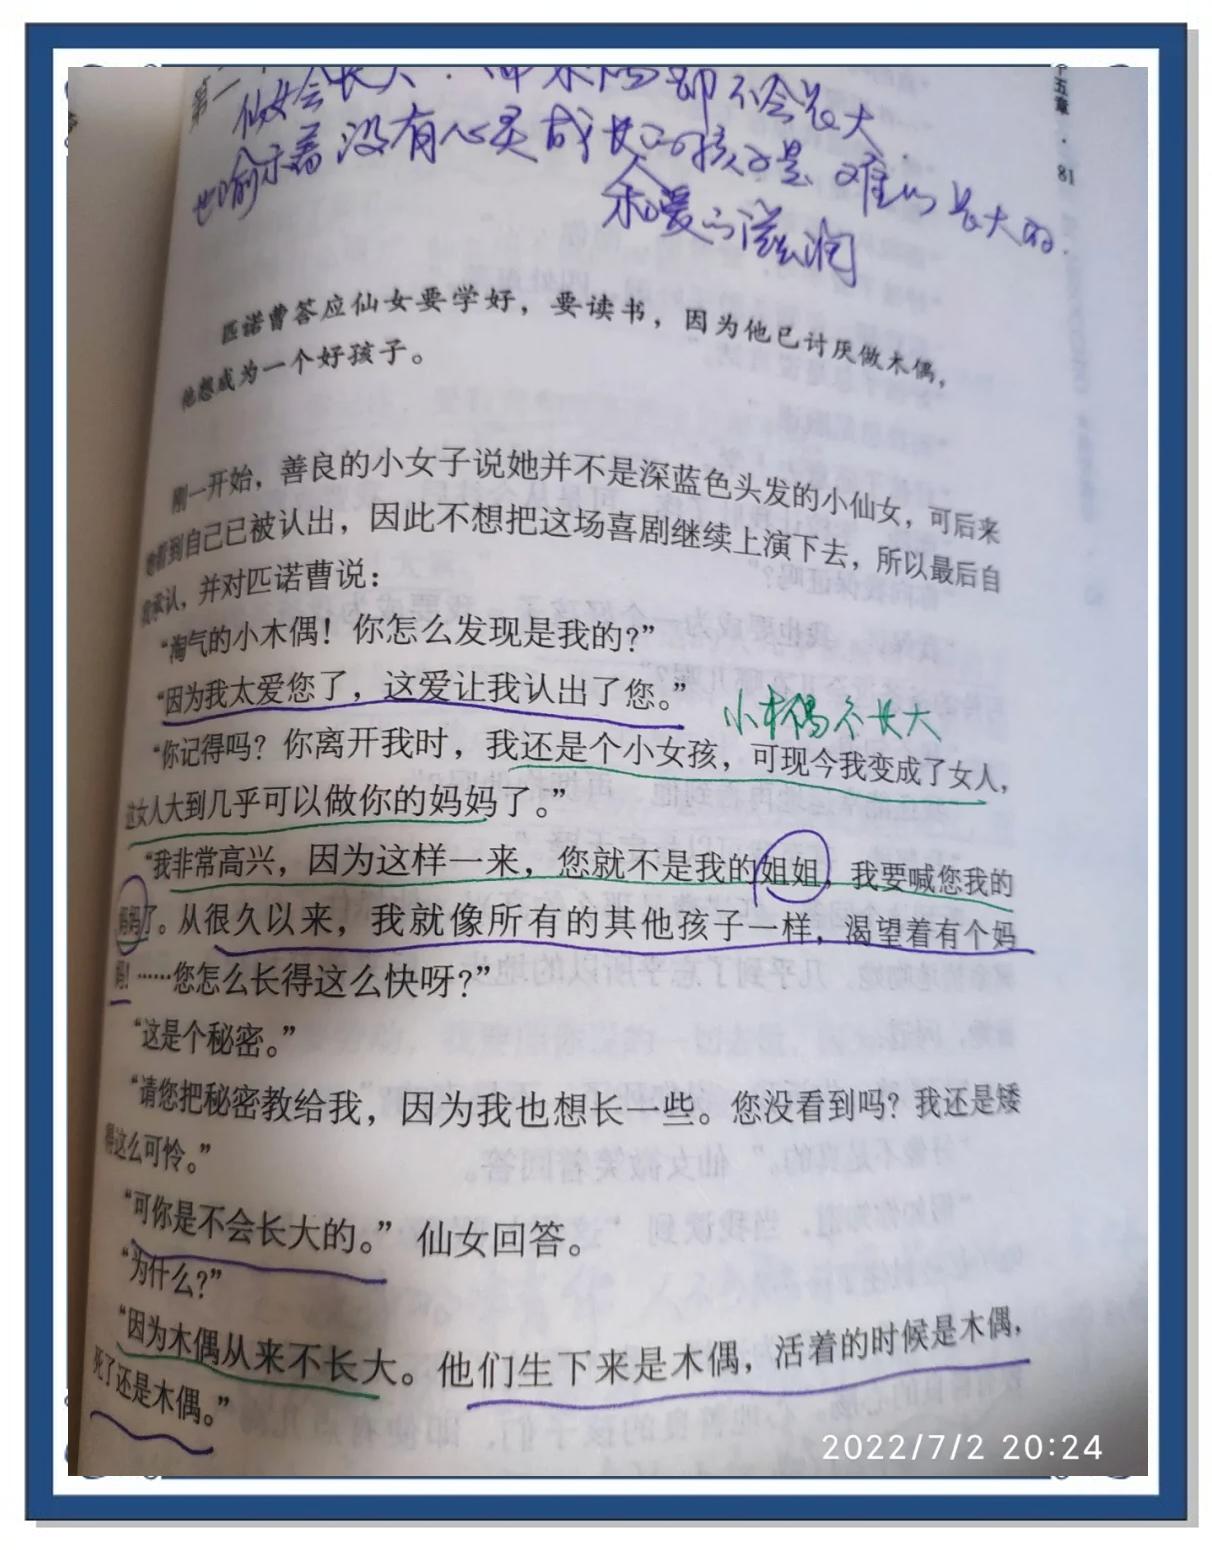 第二
十五章 · 81
仙女会长大. 小木偶却不会长大.
也喻示着没有心灵成长的孩子是难以长大的.
人
和爱的滋润
匹诺曹答应仙女要学好，要读书，因为他已讨厌做木偶，
他想成为一个好孩子。
刚一开始，善良的小女子说她并不是深蓝色头发的小仙女，可后来
她看到自己已被认出，因此不想把这场喜剧继续上演下去，所以最后自
我承认，并对匹诺曹说：
“淘气的小木偶！你怎么发现是我的?”
“因为我太爱您了，这爱让我认出了您。”
小木偶不长大
“你记得吗？你离开我时，我还是个小女孩，可现今我变成了女人，
这女人大到几乎可以做你的妈妈了。”
“我非常高兴，因为这样一来，您就不是我的姐姐，我要喊您我的
妈妈了。从很久以来，我就像所有的其他孩子一样，渴望着有个妈
妈！……您怎么长得这么快呀?”
“这是个秘密。”
“请您把秘密教给我，因为我也想长一些。您没看到吗？我还是矮
得这么可怜。”
“可你是不会长大的。” 仙女回答。
“为什么?”
“因为木偶从来不长大。他们生下来是木偶，活着的时候是木偶，
死了还是木偶。”
2022/7/2 20:24